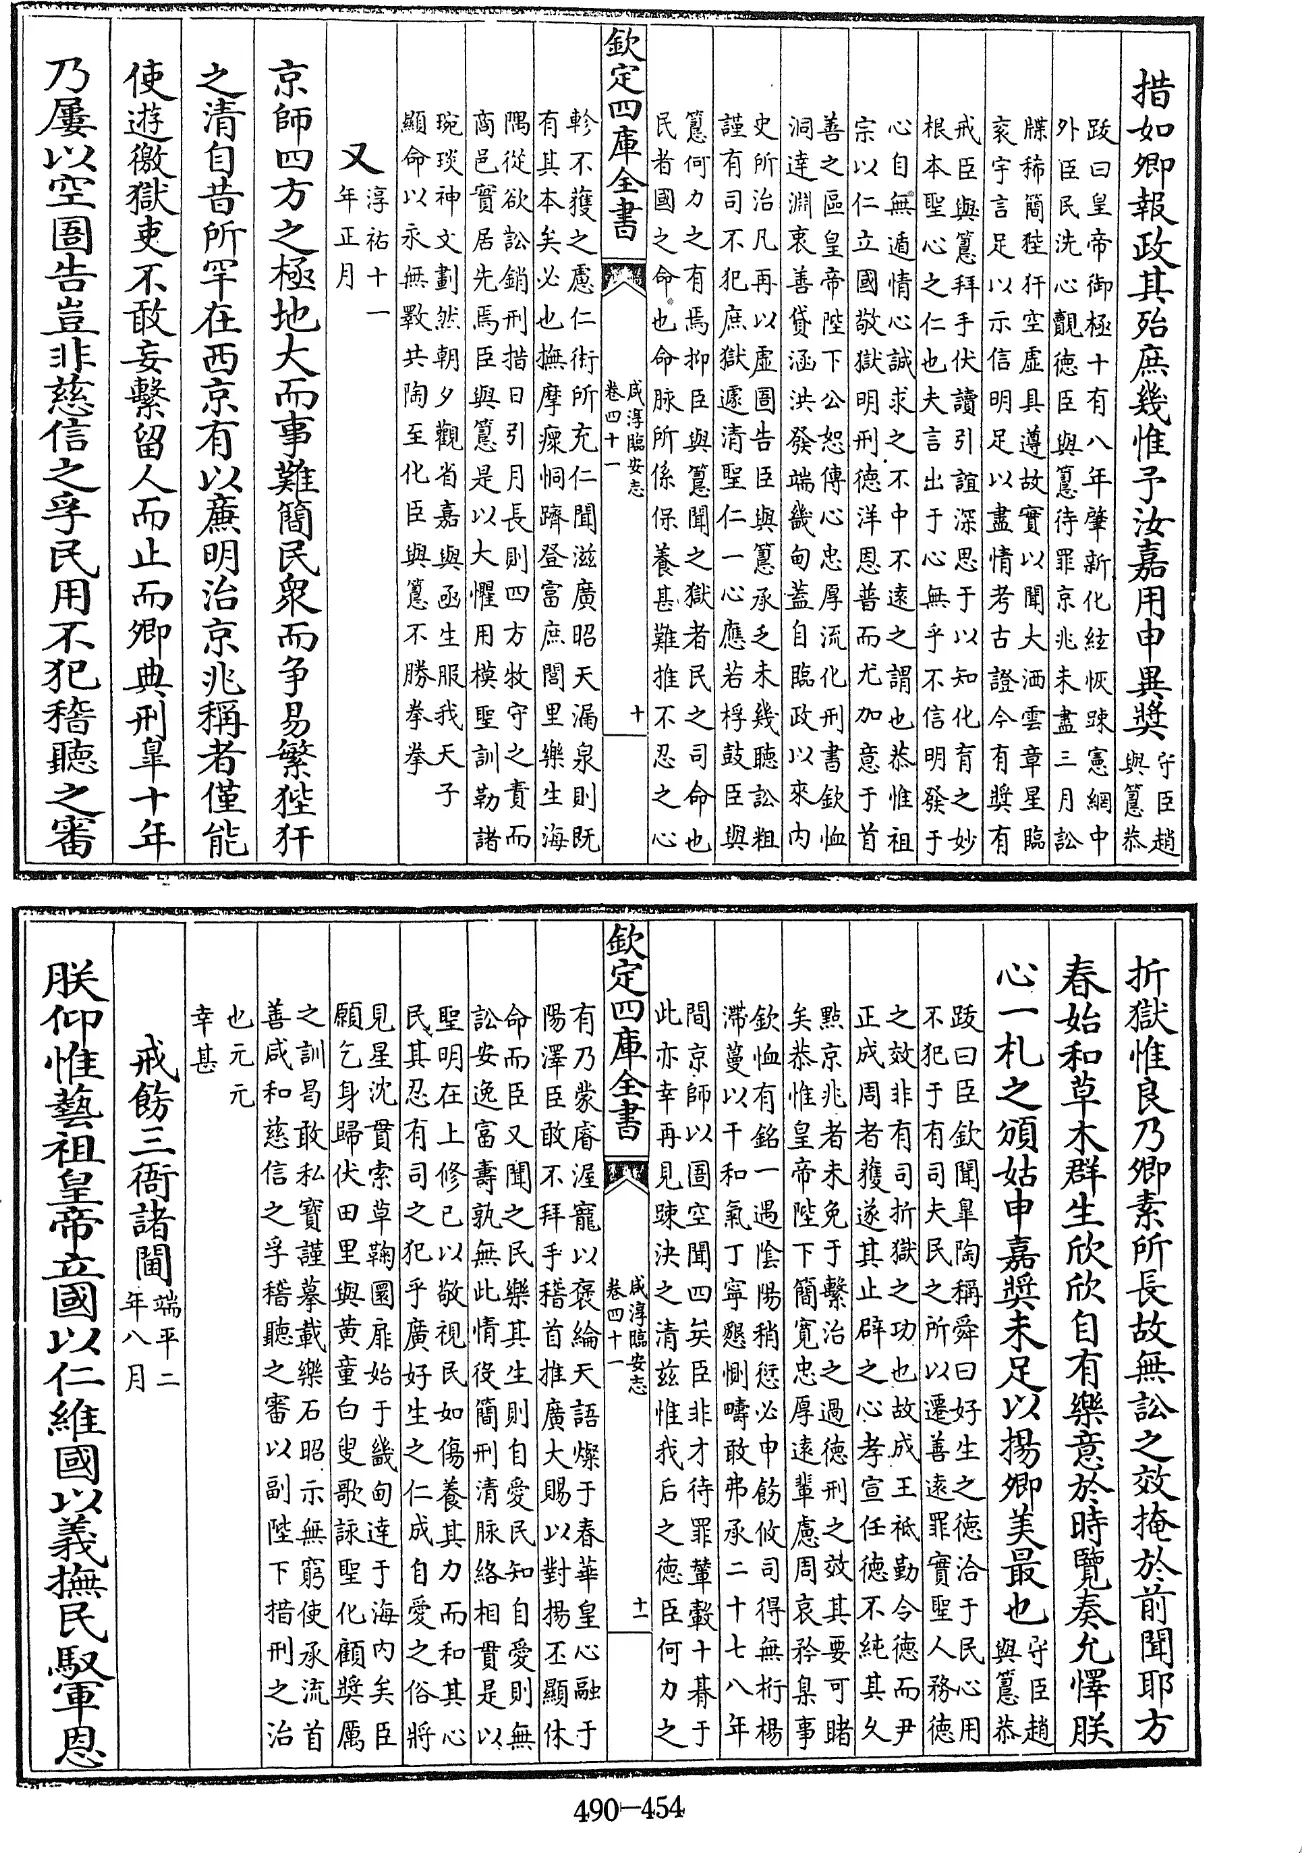 措如卿報政其殆庶幾惟予汝嘉用申異奬
守臣趙
與𥲅恭
跋曰皇帝御極十有八年肇新化絃恢疎憲網中
外臣民洗心觀德臣與𥲅待罪京兆未盡三月訟
牒稀簡狴犴空虛具遵故實以聞大洒雲章星臨
衮宇言足以示信明足以盡情考古證今有奬有
戒臣與𥲅拜手伏讀引誼深思于以知化育之妙
根本聖心之仁也夫言出于心無乎不信明發于
心自無遁情心誠求之不中不遠之謂也恭惟祖
宗以仁立國敬獄明刑德洋恩普而尤加意于首
善之區皇帝陛下公恕傳心忠厚流化刑書欽恤
洞達淵衷善貸涵洪發端畿甸蓋自臨政以來内
史所治凡再以虛圄告臣與𥲅承乏未幾聽訟粗
謹有司不犯庶獄遽清聖仁一心應若桴鼓臣與
𥲅何力之有焉抑臣與𥲅聞之獄者民之司命也
民者國之命也命脉所係保養甚難推不忍之心
欽定四庫全書
咸淳臨安志
卷四十一
十
軫不獲之慮仁術所充仁聞滋廣昭天漏泉則既
有其本矣必也撫摩瘝恫躋登富庶閭里樂生海
隅從欲訟銷刑措日引月長則四方牧守之責而
商邑實居先焉臣與𥲅是以大懼用模聖訓勒諸
琬琰神文劃然朝夕觀省嘉與函生服我天子
顯命以永無斁共陶至化臣與𥲅不勝拳拳
又
淳祐十一
年正月
京師四方之極地大而事難簡民衆而争易繁狴犴
之清自昔所罕在西京有以廉明治京兆稱者僅能
使遊徼獄吏不敢妄繫留人而止而卿典刑臯十年
乃屢以空圄告豈非慈信之孚民用不犯稽聽之審
折獄惟良乃卿素所長故無訟之效掩於前聞耶方
春始和草木群生欣欣自有樂意於時覽奏允懌朕
心一札之頒姑申嘉奬未足以揚卿美最也
守臣趙
與𥲅恭
跋曰臣欽聞臯陶稱舜曰好生之德洽于民心用
不犯于有司夫民之所以遷善遠罪實聖人務德
之效非有司折獄之功也故成王祗勤令德而尹
正成周者獲遂其止辟之心孝宣任德不純其久
點京兆者未免于繫治之過德刑之效其要可睹
矣恭惟皇帝陛下簡寛忠厚遠軰慮周哀矜臬事
欽恤有銘一遇陰陽稍愆必申飭攸司得無桁楊
滯蔓以干和氣丁寧懇惻疇敢弗承二十七八年
間京師以圄空聞四矣臣非才待罪輦轂十朞于
此亦幸再見疎決之清兹惟我后之德臣何力之
欽定四庫全書
咸淳臨安志
卷四十一
十一
有乃蒙睿渥寵以褒綸天語燦于春華皇心融于
陽澤臣敢不拜手稽首推廣大賜以對揚丕顯休
命而臣又聞之民樂其生則自愛民知自愛則無
訟安逸富壽孰無此情役簡刑清脉絡相貫是以
聖明在上修已以敬視民如傷養其力而和其心
民其忍有司之犯乎廣好生之仁成自愛之俗將
見星沈貫索草鞠圜扉始于畿甸達于海内矣臣
願乞身歸伏田里與黄童白叟歌詠聖化顧奬厲
之訓曷敢私寶謹摹載樂石昭示無窮使承流首
善咸和慈信之孚稽聽之審以副陛下措刑之治
也元元
幸甚
戒飭三衙諸閫
端平二
年八月
朕仰惟藝祖皇帝立國以仁維國以義撫民馭軍恩
490—454